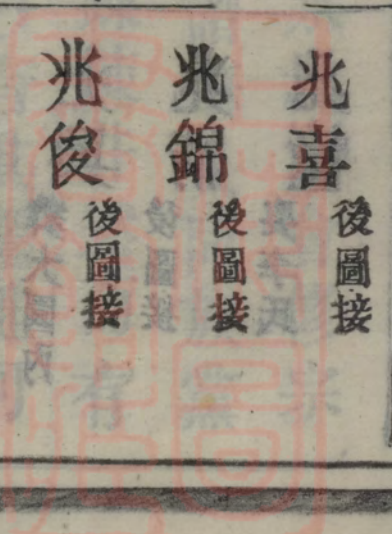 兆喜
後圖接
兆錦
後圖接
兆俊
後圖接